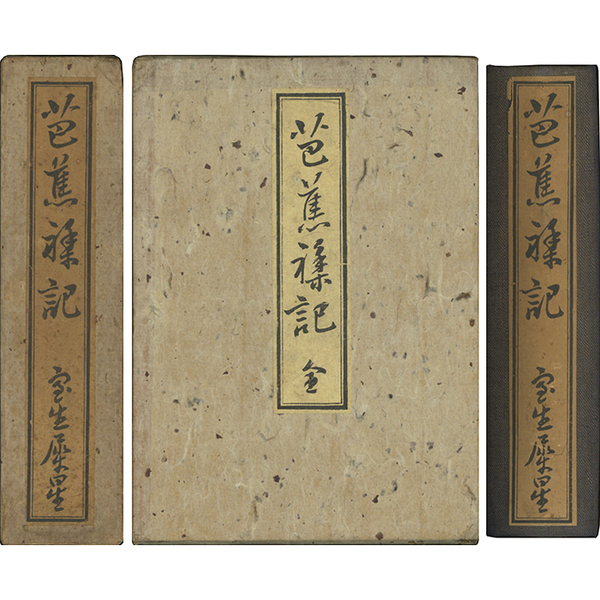 芭蕉襍記
室生犀星
芭蕉襍記
全
芭蕉襍記
室生犀星